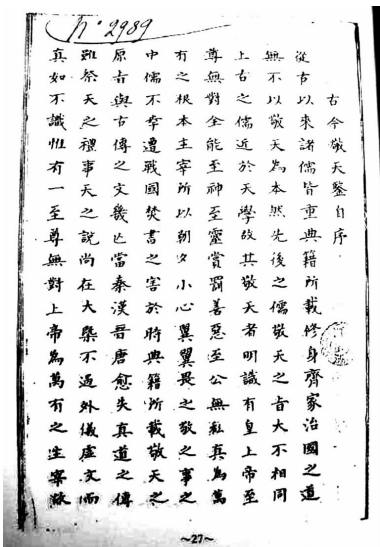 n° 2989
古今敬天鑒自序
從古以來諸儒皆重典籍所載修身齊家治國之道
無不以敬天為本然先後之儒敬天之旨大不相同
上古之儒近於天學故其敬天者明識有皇上帝至
尊無對全能至神至靈賞罰善惡至公無私真為萬
有之根本主宰所以朝夕小心翼翼畏之敬之事之
中儒不幸遭戰國焚書之害於時典籍所載敬天之
原旨與古傳之文幾亡當秦漢晉唐愈失真道之傳
雖祭天之禮事天之說尚在大槩不過外儀虛文而
真如不識惟有一至尊無對上帝為萬有之主宰故
~27~